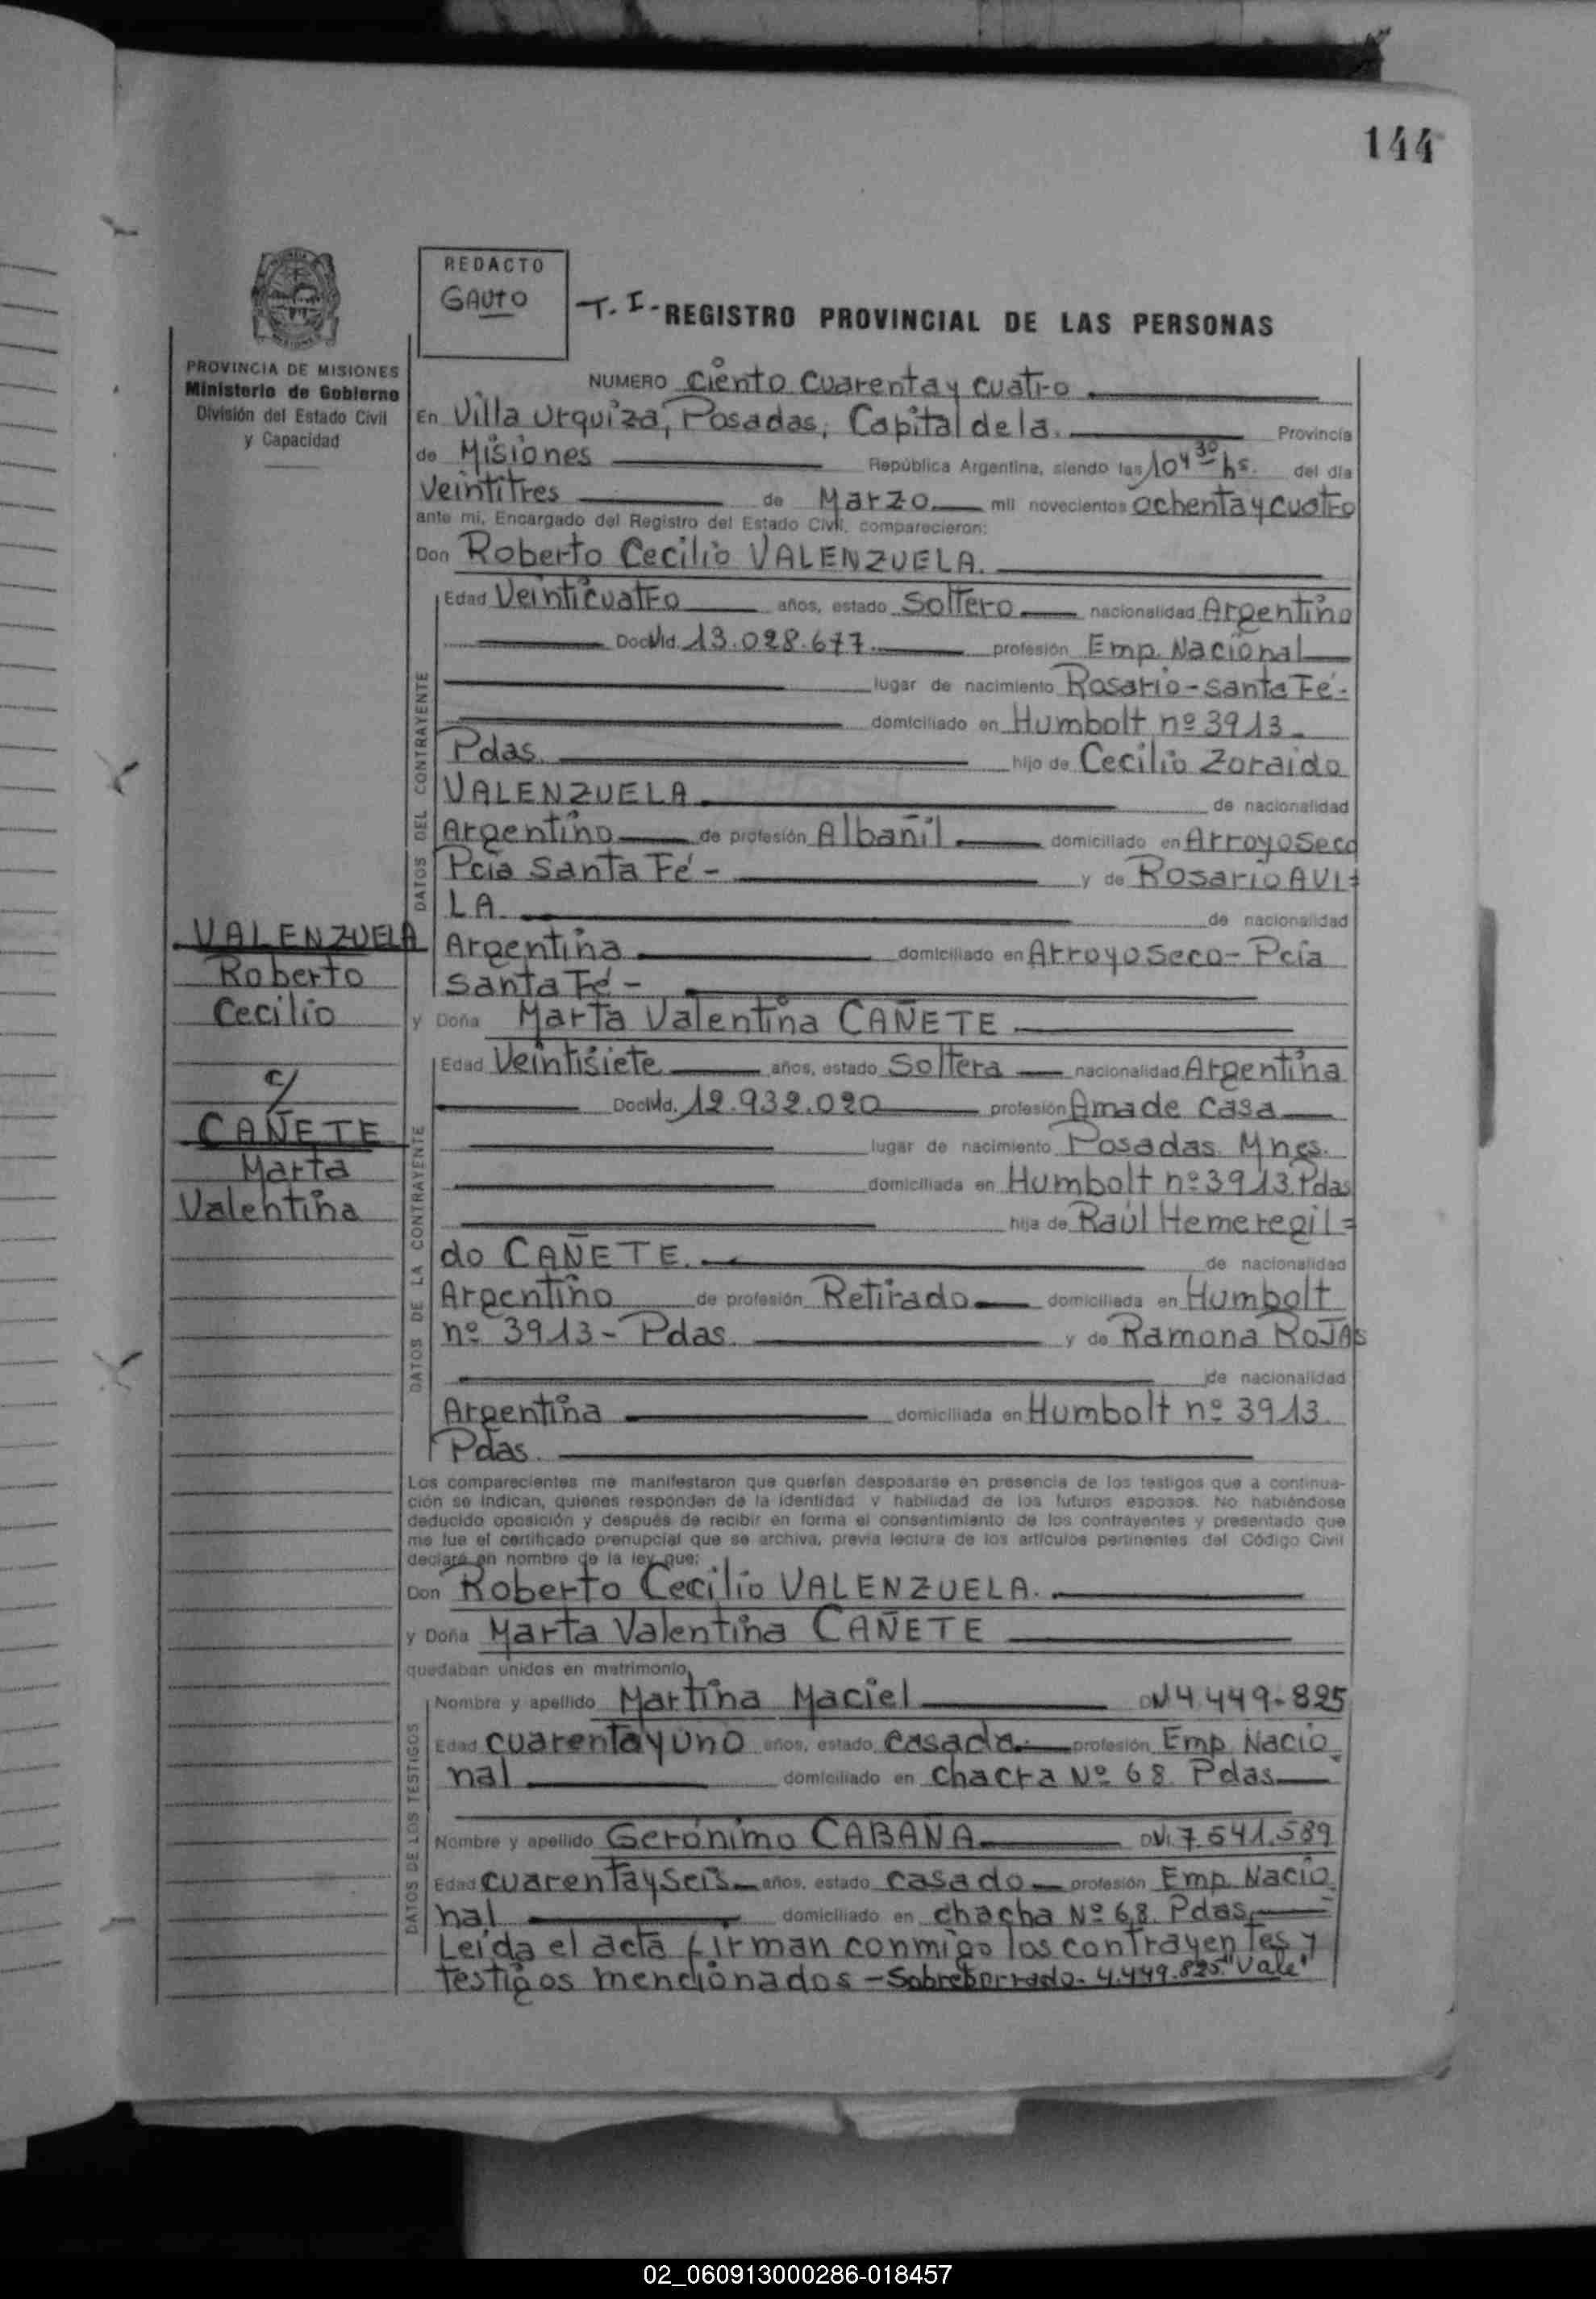 144
REDACTO
GAUTO
T. I - REGISTRO PROVINCIAL DE LAS PERSONAS
PROVINCIA DE MISIONES
Ministerio de Gobierno
División del Estado Civil
y Capacidad
NUMERO Ciento Cuarenta y cuatro
En Villa Urquiza, Posadas, Capital de la Provincia
de Misiones República Argentina, siendo las 10 y 30 hs. del día
veintitres de Marzo mil novecientos ochenta y cuatro
ante mi, Encargado del Registro del Estado Civil, comparecieron:
Don Roberto Cecilio VALENZUELA.
DATOS DEL CONTRAYENTE
Edad Veinticuatro años, estado Soltero nacionalidad Argentino
Doc. 13.028.677. profesión Emp. Nacional
lugar de nacimiento Rosario - Santa Fé -
domiciliado en Humbolt nº 3913.
Pdas. hijo de Cecilio Zoraido
VALENZUELA de nacionalidad
Argentino de profesión Albañil domiciliado en Arroyo Seco
Pcia Santa Fé - y de Rosario AVI=
LA de nacionalidad
Argentina domiciliado en Arroyo Seco - Pcia
Santa Fé -
VALENZUELA
Roberto
Cecilio
c/
CAÑETE
Marta
Valentina
y Doña Marta Valentina CAÑETE
DATOS DE LA CONTRAYENTE
Edad Veintisiete años, estado Soltera nacionalidad Argentina
Doc. 12.932.020 profesión Ama de Casa
lugar de nacimiento Posadas Mnes.
domiciliada en Humbolt nº 3913 Pdas
hija de Raúl Hemeregil=
do CAÑETE. de nacionalidad
Argentino de profesión Retirado domiciliada en Humbolt
nº 3913 - Pdas. y de Ramona ROJAS
de nacionalidad
Argentina domiciliada en Humbolt nº 3913.
Pdas.
Los comparecientes me manifestaron que querían desposarse en presencia de los testigos que a continua-
ción se indican, quienes responden de la identidad y habilidad de los futuros esposos. No habiéndose
deducido oposición y después de recibir en forma el consentimiento de los contrayentes y presentado que
me fue el certificado prenupcial que se archiva, previa lectura de los artículos pertinentes del Código Civil
declaré en nombre de la ley que:
Don Roberto Cecilio VALENZUELA.
y Doña Marta Valentina CAÑETE
quedaban unidos en matrimonio.
DATOS DE LOS TESTIGOS
Nombre y apellido Martina Maciel 4.449.825
Edad cuarenta y uno años, estado casada profesión Emp. Nacio
nal domiciliado en chacra Nº 68. Pdas
Nombre y apellido Gerónimo CABANA 7.541.589
Edad cuarenta y seis años, estado casado profesión Emp. Nacio
nal domiciliado en chacha Nº 68. Pdas
Leida el acta firman conmigo los contrayentes y
testigos mencionados - Sobreborrado - 4.449.825 "Vale"
02_060913000286-018457